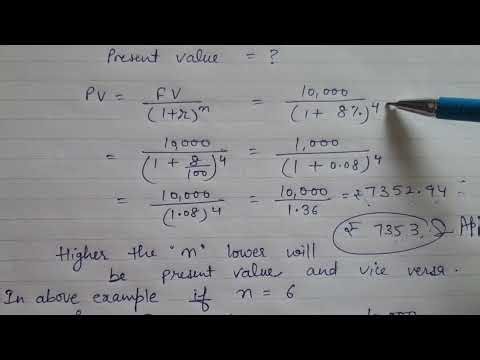 Present value = ?
PV = FV / (1+r)^n = 10,000 / (1 + 8%)^4
= 10,000 / (1 + 8/100)^4 = 1,000 / (1 + 0.08)^4
= 10,000 / (1.08)^4 = 10,000 / 1.36 = ₹ 7352.94
₹ 7353
Higher the "n" lower will
be present value and vice versa.
In above example if n = 6